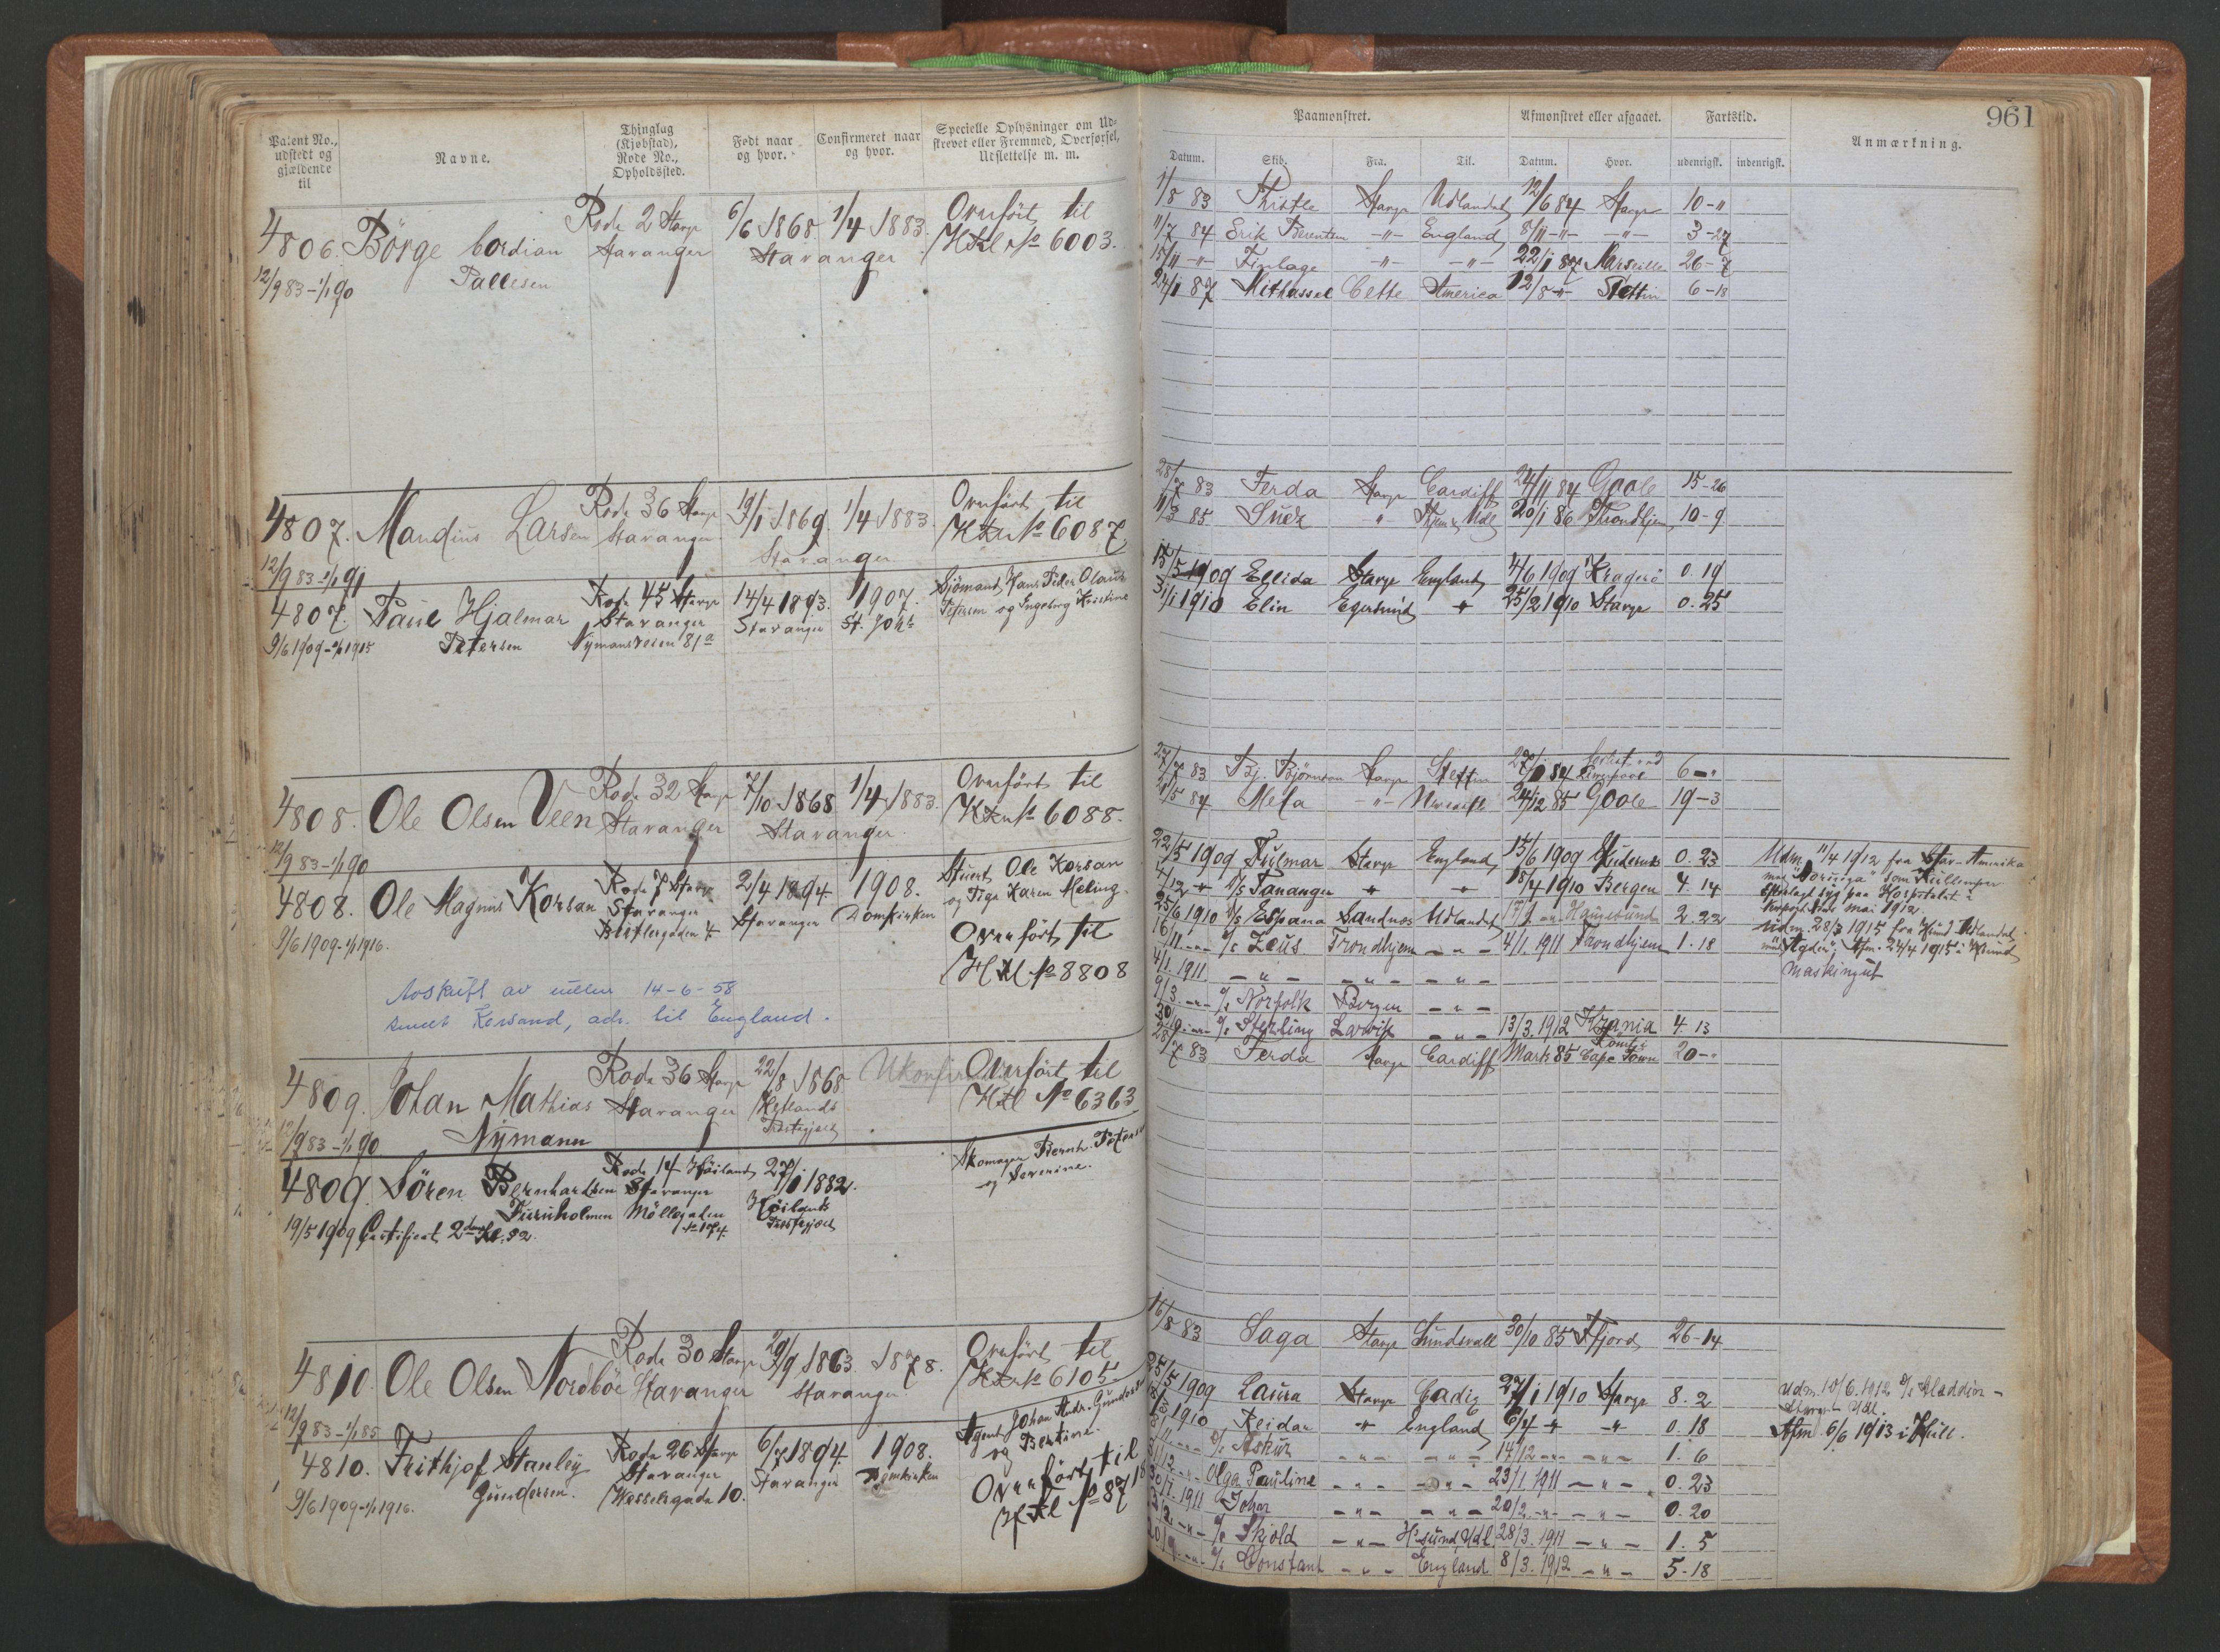 Patent No.,
udstedt og
gjældende
til
Navne.
Thinglag
(Kjøbstad),
Rode No.,
Opholdssted.
Født naar
og hvor.
Confirmeret naar
og hvor.
Specielle Oplysninger om Ud-
skrevet eller Fremmed, Overførsel,
Udslettelse m. m.
4806. Börge Cordian
Pallesen
12/9 83 – 1/1 90
Rode 2 Stavgr
Stavanger
6/6 1868 1/4 1883.
Stavanger
Overført til
HKl No 6003.
4807. Mandius Larsen
12/9 83 – 1/1 91
Rode 36 Stavgr
Stavanger
19/1 1869. 1/4 1883.
Stavanger
Overført til
No 6087.
4807. Paul Hjalmar
Petersen
9/6 1909 – 1/1 1915
Rode 45 Stavgr
Stavanger
Nymansveien 81a
14/4 1893. 1907.
Stavanger St. Joh:
Sjömand Hans Peder Olaus
Petersen og Engeborg Kristine
4808. Ole Olsen Veen
12/9 83 – 1/1 90
Rode 32 Stavgr
Stavanger
7/10 1868 1/4 1883.
Stavanger
Overført til
No 6088.
4808. Ole Magnus Korsan
9/6 1909 – 1/1 1916.
Rode 7 Stavgr
Stavanger
4
2/4 1894. 1908.
Stavanger Domkirken
Stuert Ole Korsan
og Karen Meling
Overført til
HKl No 8808
Avskrift av rullen 14-6-58
sendt Korsand, adr. til England.
4809. Johan Mathias
Nymann
12/9 83 – 1/1 90
Rode 36 Stavgr
Stavanger
22/8 1868 Ukonfirm
Hetlands
Præstegjæld
Overført til
HKl No 6363
4809. Sören Bernhardsen
Furuholmen
19/5 1909 Certificat 2den Kl. 52.
Rode 14 Höiland
Stavanger
Möllegaden
No 174.
27/1 1882.
Höilands
Præstegjæld
Skomager Bernh. Peters
og Severine.
4810. Ole Olsen Nordböe
12/9 83 – 1/1 85
Rode 30 Stavgr
Stavanger
29/9 1863. 1878.
Stavanger
Overført til
No 6105.
4810. Frithjof Stanley
Gundersen.
9/6 1909 – 1/1 1916.
Rode 26 Stavgr
Stavanger
Wesselsgade 10.
6/7 1894. 1908.
Stavanger Domkirken
Agent Johan Andr. Gunders
og Bertine.
Overført til
HKl No 8718
961
Paamonstret.
Afmonstret eller afgaaet.
Fartstid.
Anmærkning.
Datum.
Skib.
Fra.
Til.
Datum.
Hvor.
udenrigsk.
indenrigsk.
1/8 83 Thistle Stavgr Udlandet 12/6 84 Stavgr 10-"
11/7 84 Erik Berentsen -"- England 8/11 -"- -"- 3-27
15/11 -"- -"- -"- 22/1 87 Marseille 26-7
24/1 87 Cette America 12/8 -"- Stettin 6-18
28/7 83 Ferda Stavgr Cardiff 24/11 84 Goole 15-26
11/3 85 Suez " 20/1 86 Trondhjem 10-9
15/5 1909 Ellida Stavgr England 4/6 1909 Kragerö 0.19
31/1 1910 Elin Egersund " 25/2 1910 Stavgr 0.25
27/7 83 Bj. Björnson Stavgr Stettin 27/1 84 Forlist ved
Liverpool 6-"
21/5 84 Meta -"- 24/12 85 Goole 19-3
22/5 1909 Fulmar Stavgr England 15/6 1909 0.23
4/12 " D/S Tananger " " 15/4 1910 Bergen 4.14
25/6 1910 D/S Espana Sandnes Udlandet 17/9 -"- Haugesund 2.22
16/11 -"- D/S Zeus Trondhjem -"- 4/1. 1911 Trondhjem 1.18
4/1. 1911 -"- -"- -"-
9/3. -"- D/S Norfolk Bergen -"-
30/10 -"- D/S Sterling Larvik -"- 13/3. 1912 Krania 4.13
Udm. 11/4 1912 fra Stav-Amerika
med "Noruega" som Kullemper
Efterlagt syg paa Hospitalet i
mai 1912.
Udm. 28/3 1915 fra Hsund Udlandet
med "Agdin"; Afm. 24/4 1915 i Hsund
Maskingut
28/7 83 Ferda Stavgr Cardiff Marts 85 Römte
Cape Town 20-"
16/8 83 Saga Stavgr Sundsvall 30/10 85 Ffjord 26-14
25/5 1909 Laura Stavgr Cadiz 27/1 1910 Stavgr 8.2
1910 Reidar " England 6/4 " " 0.18
D/S Askur -"- -"- 14/12 -"- -"- 1.6
Olga Pauline -"- -"- 23/1 1911 -"- 0.23
1911 Johan -"- -"- 20/2 -"- -"- 0.20
D/S Skjold -"- H-sund, Udl. 28/3. 1911 -"- 1.5
20/9 -"- D/S Constant -"- England 8/3. 1912 -"- 5-18
Udm. 10/6. 1912 D/S Aladdin –
Stavgr Udl.
Afm 6/6 1913 i Hull.